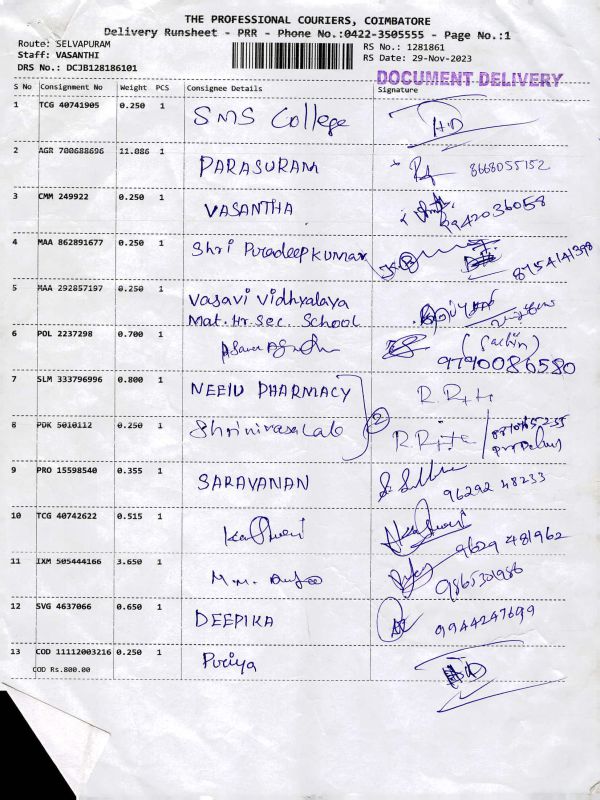 THE PROFESSIONAL COURIERS, COIMBATORE
Delivery Runsheet - PRR - Phone No.:0422-3505555 - Page No.:1
Route: SELVAPURAM
RS No.: 1281861
Staff: VASANTHI
RS Date: 29-Nov-2023
DRS No.: DCJB128186101
DOCUMENT DELIVERY
S No Consignment No Weight PCS Consignee Details Signature
1 TCG 40741905 0.250 1 SMS College
2 AGR 700688696 11.086 1 PARASURAM 8668055152
3 CMM 249922 0.250 1 VASANTHA 9942036058
4 MAA 862891677 0.250 1 Shri Puradeepkumar 8754141398
5 MAA 292857197 0.250 1 Vasavi Vidhyalaya
Mat.Hr.Sec. School
6 POL 2237298 0.700 1 (Sachin)
9790086580
7 SLM 333796996 0.800 1 PHARMACY
8 PDK 5010112 0.250 1 Shrinivasa Lab 2
9 PRO 15598540 0.355 1 SARAVANAN 96292 48233
10 TCG 40742622 0.515 1 9629 481962
11 IXM 505444166 3.650 1 M.M.
12 SVG 4637066 0.650 1 DEEPIKA 9944247699
13 COD 11112003216 0.250 1 Puriya
COD Rs.800.00